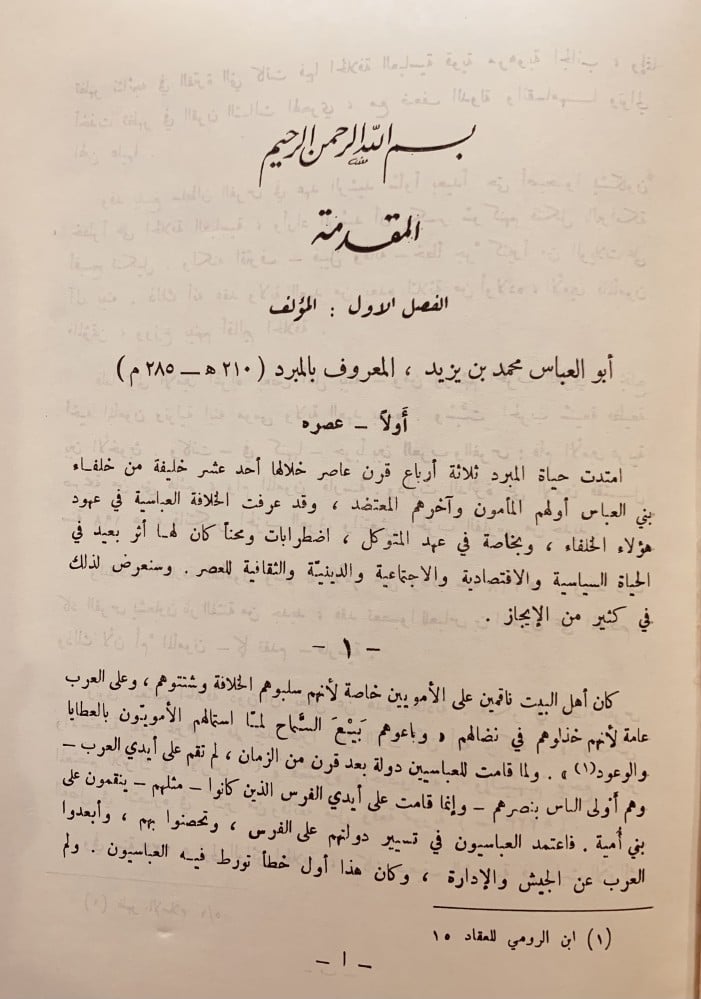 بسم الله الرحمن الرحيم
المقدمة
الفصل الاول : المؤلف
أبو العباس محمد بن يزيد ، المعروف بالمبرد ( ٢١٠ ه – ٢٨٥ م )
أولاً – عصره
امتدت حياة المبرد ثلاثة أرباع قرن عاصر خلالها أحد عشر خليفة من خلفاء
بني العباس أولهم المأمون وآخرهم المعتضد ، وقد عرفت الخلافة العباسية في عهود
هؤلاء الخلفاء ، وبخاصة في عهد المتوكل ، اضطرابات ومحناً كان لها أثر بعيد في
الحياة السياسية والاقتصادية والاجتماعية والدينيّة والثقافية للعصر . وسنعرض لذلك
في كثير من الإيجاز .
– ١ –
كان أهل البيت ناقمين على الأمويين خاصة لأنهم سلبوهم الخلافة وشتتوهم ، وعلى العرب
عامة لأنهم خذلوهم في نضالهم « وباعوهم بَيْعَ السَّماح لمّا استمالهم الأمويّون بالعطايا
والوعود(١) » . ولما قامت للعباسيين دولة بعد قرن من الزمان ، لم تقم على أيدي العرب –
وهم أَولى الناس بنصرهم – وإنما قامت على أيدي الفرس الذين كانوا – مثلهم – ينقمون على
بني أُمية . فاعتمد العباسيون في تسيير دولتهم على الفرس ، وتحصنوا بهم ، وأبعدوا
العرب عن الجيش والإدارة ، وكان هذا أول خطأ تورط فيه العباسيون . ولم
(١) ابن الرومي للعقاد ١٥
– ا –